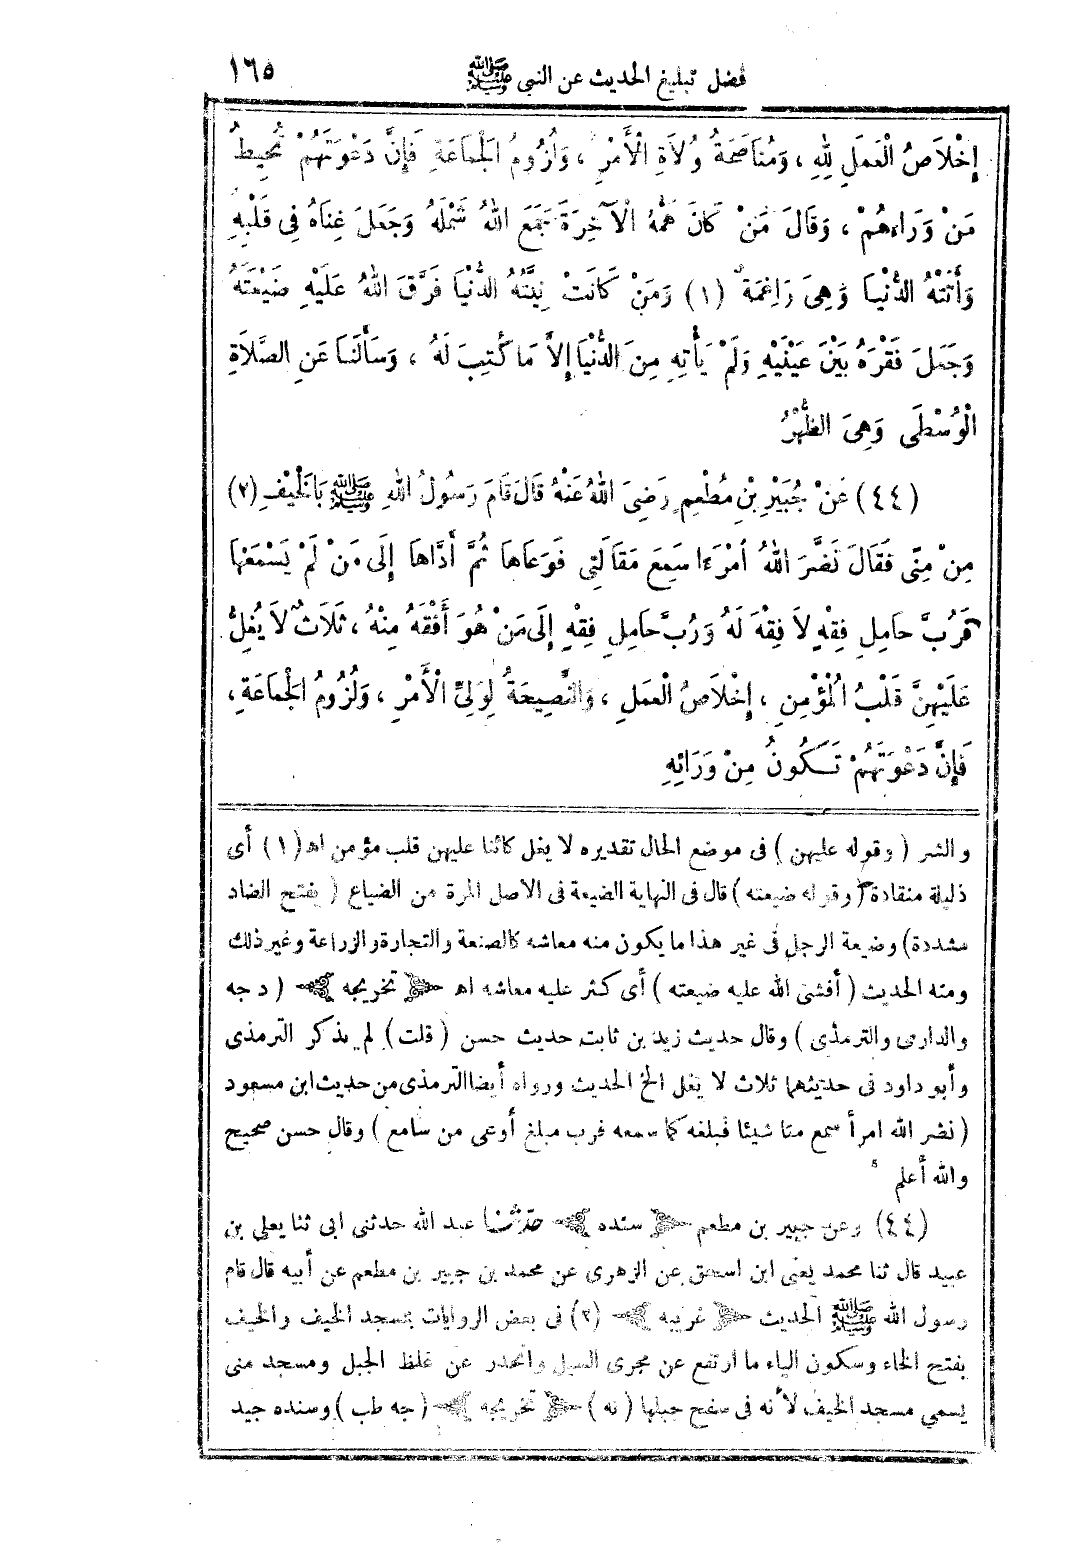 فضل تبليغ الحديث عن النبي ﷺ ١٦٥
إِخْلَاصُ الْعَمَلِ لِلّٰهِ ، وَمُنَاصَحَةُ وُلَاةِ الْأَمْرِ ، وَلُزُومُ الْجَمَاعَةِ فَإِنَّ دَعْوَتَهُمْ تُحِيطُ
مَنْ وَرَاءهُمْ ، وَقَالَ مَنْ كَانَ هَمُّهُ الْآخِرَةَ جَمَعَ اللهُ شَمْلَهُ وَجَعَلَ غِنَاهُ فِى قَلْبِهِ
وَأَتَتْهُ الدُّنْيَا وَهِىَ رَاغِمَةٌ (١) وَمَنْ كَانَتْ نِيَّتُهُ الدُّنْيَا فَرَّقَ اللهُ عَلَيْهِ ضَيْعَتَهُ
وَجَعَلَ فَقْرَهُ بَيْنَ عَيْنَيْهِ وَلَمْ يَأْتِهِ مِنَ الدُّنْيَا إِلاَّ مَا كُتِبَ لَهُ ، وَسَأَلْنَا عَنِ الصَّلَاةِ
الْوُسْطَى وَهِىَ الظُّهْرُ
(٤٤) عَنْ جُبَيْرِ بْنِ مُطْعِمٍ رَضِىَ اللهُ عَنْهُ قَالَ قَامَ رَسُولُ اللهِ ﷺ بِالْخَيْفِ (٢)
مِنْ مِنًى فَقَالَ نَضَّرَ اللهُ امْرَءًا سَمِعَ مَقَالَتِى فَوَعَاهَا ثُمَّ أَدَّاهَا إِلَى مَنْ لَمْ يَسْمَعْهَا
فَرُبَّ حَامِلِ فِقْهٍ لَا فِقْهَ لَهُ وَرُبَّ حَامِلِ فِقْهٍ إِلَى مَنْ هُوَ أَفْقَهُ مِنْهُ ، ثَلَاثٌ لَا يُغِلُّ
عَلَيْهِنَّ قَلْبُ الْمُؤْمِنِ ، إِخْلَاصُ الْعَمَلِ ، وَالنَّصِيحَةُ لِوَلِىِّ الْأَمْرِ ، وَلُزُومُ الْجَمَاعَةِ ،
فَإِنَّ دَعْوَتَهُمْ تَكُونُ مِنْ وَرَائِهِ
والشر ( وقوله عليهن ) فى موضع الحال تقديره لا يغل كائنا عليهن قلب مؤمن اه (١) أى
ذليلة منقادة ( وقوله ضيعته ) قال فى النهاية الضيعة فى الاصل المرة من الضياع ( بفتح الضاد
مشددة) وضيعة الرجل فى غير هذا ما يكون منه معاشه كالصنعة والتجارة والزراعة وغير ذلك
ومنه الحديث ( أفشى الله عليه ضيعته ) أى كثر عليه معاشه اه تخريجه ( د جه
والدارمى والترمذى ) وقال حديث زيد بن ثابت حديث حسن ( قلت ) لم يذكر الترمذى
وأبو داود فى حديثهما ثلاث لا يغل الخ الحديث ورواه أيضا الترمذى من حديث ابن مسعود
( نضر الله امرأ سمع منا شيئا فبلغه كما سمعه فرب مبلغ أوعى من سامع ) وقال حسن صحيح
والله أعلم
(٤٤) وعن جبير بن مطعم سنده حدثنا عبد الله حدثنى ابى ثنا يعلى بن
عبيد قال ثنا محمد يعنى ابن اسحق عن الزهرى عن محمد بن جبير بن مطعم عن أبيه قال قام
رسول الله ﷺ الحديث غريبه (٢) فى بعض الروايات بمسجد الخيف والخيف
بفتح الخاء وسكون الياء ما ارتفع عن مجرى السيل وانحدر عن غلظ الجبل ومسجد منى
يسمى مسجد الخيف لأنه فى سفح جبلها ( نه ) تخريجه ( جه طب ) وسنده جيد